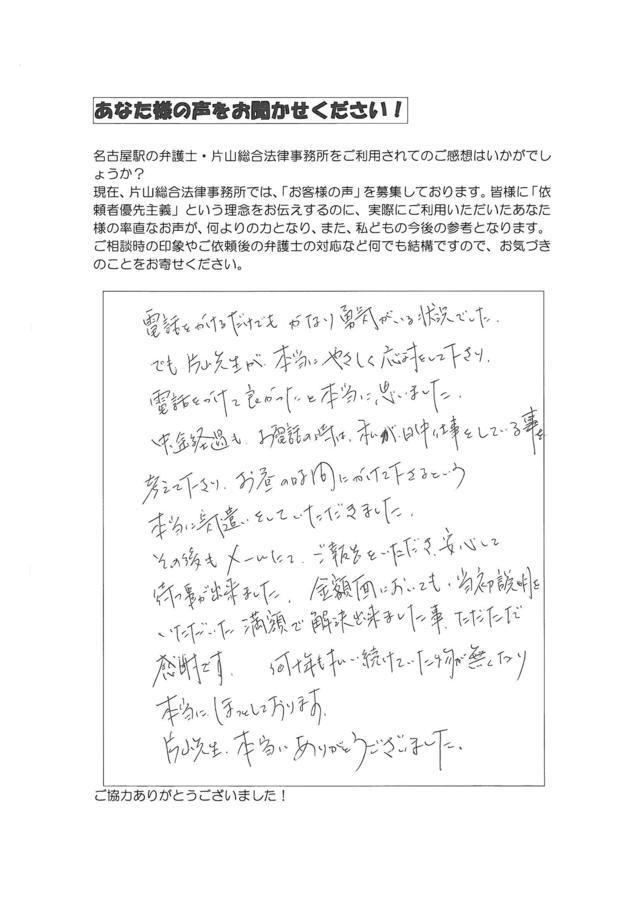 あなた様の声をお聞かせください！
名古屋駅の弁護士・片山総合法律事務所をご利用されてのご感想はいかがでし
ょうか？
現在、片山総合法律事務所では、「お客様の声」を募集しております。皆様に「依
頼者優先主義」という理念をお伝えするのに、実際にご利用いただいたあなた
様の率直なお声が、何よりの力となり、また、私どもの今後の参考となります。
ご相談時の印象やご依頼後の弁護士の対応など何でも結構ですので、お気づき
のことをお寄せください。
電話をかけるだけでもかなり勇気がいる状況でした。
でも片山先生が、本当にやさしく応対をして下さり、
電話をかけて良かったと本当に思いました。
途中経過も、お電話の時は、私が日中仕事をしている事を
考えて下さり、お昼の時間にかけて下さるという
本当に気遣いをしていただきました。
その後もメールにて、ご報告をいただき、安心して
待つ事が出来ました。金額面においても、当初説明を
いただいた満額で解決出来ました事、ただただ
感謝です。 何十年も払い続けていた物が無くなり
本当にほっとしております。
片山先生、本当にありがとうございました。
ご協力ありがとうございました！